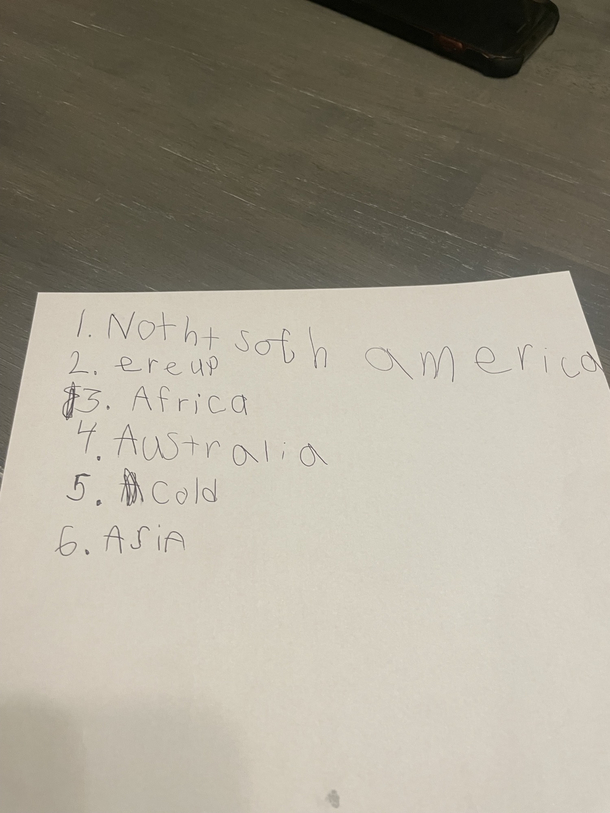 1. Notht soth america
2. ereup
3. Africa
4. Australia
5. Cold
6. ASiA